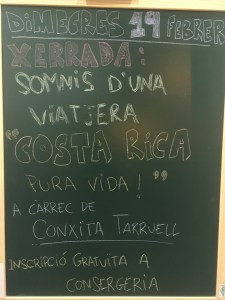 DIMECRES 19 FEBRER
XERRADA:
SOMNIS D'UNA
VIATJERA
"COSTA RICA
PURA VIDA!"
A CÀRREC DE
CONXITA TARRUELL
INSCRIPCIÓ GRATUITA A
CONSERGERIA